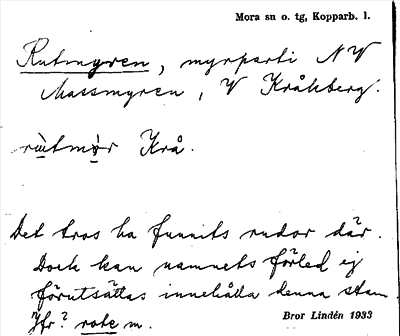 Mora sn o. tg, Kopparb. l.
Rutmyren, myrparti NV
Massmyren, V Kråkberg.
rùtmỳr Krå.
Det tros ha funnits rudor där.
Dock kan namnets förled ej
förutsättas innehålla denna stam.
Jfr? rote m.
Bror Lindén 1933